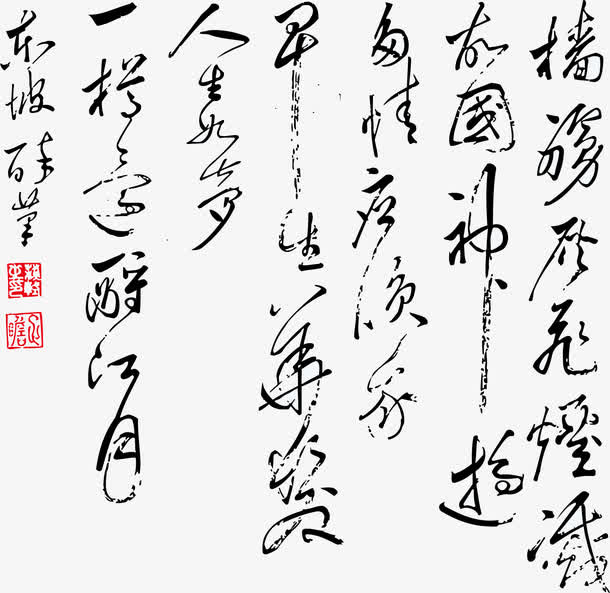 檣艣灰飛煙滅
故國神遊
多情應須我
早生華髮
人生如夢
一樽還酹江月
東坡醉筆
子瞻